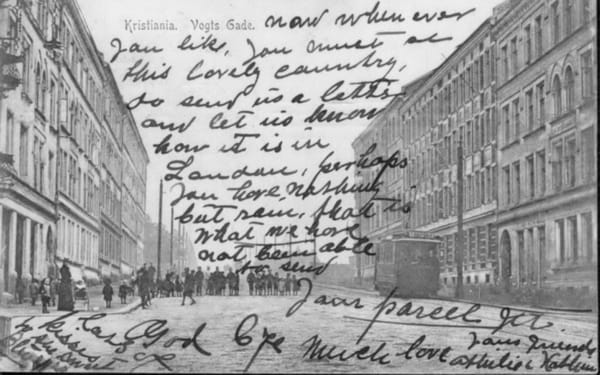 Kristiania. Vogts Gade.
now whenever
you like, you must se
this lovely country,
so send us a letter
and let us know
how it is in
London, perhaps
you have, nothing
but rain, that is
what we have
not been able
to send
your parcel yet.
Good Bye
kisses
Much love
your friends